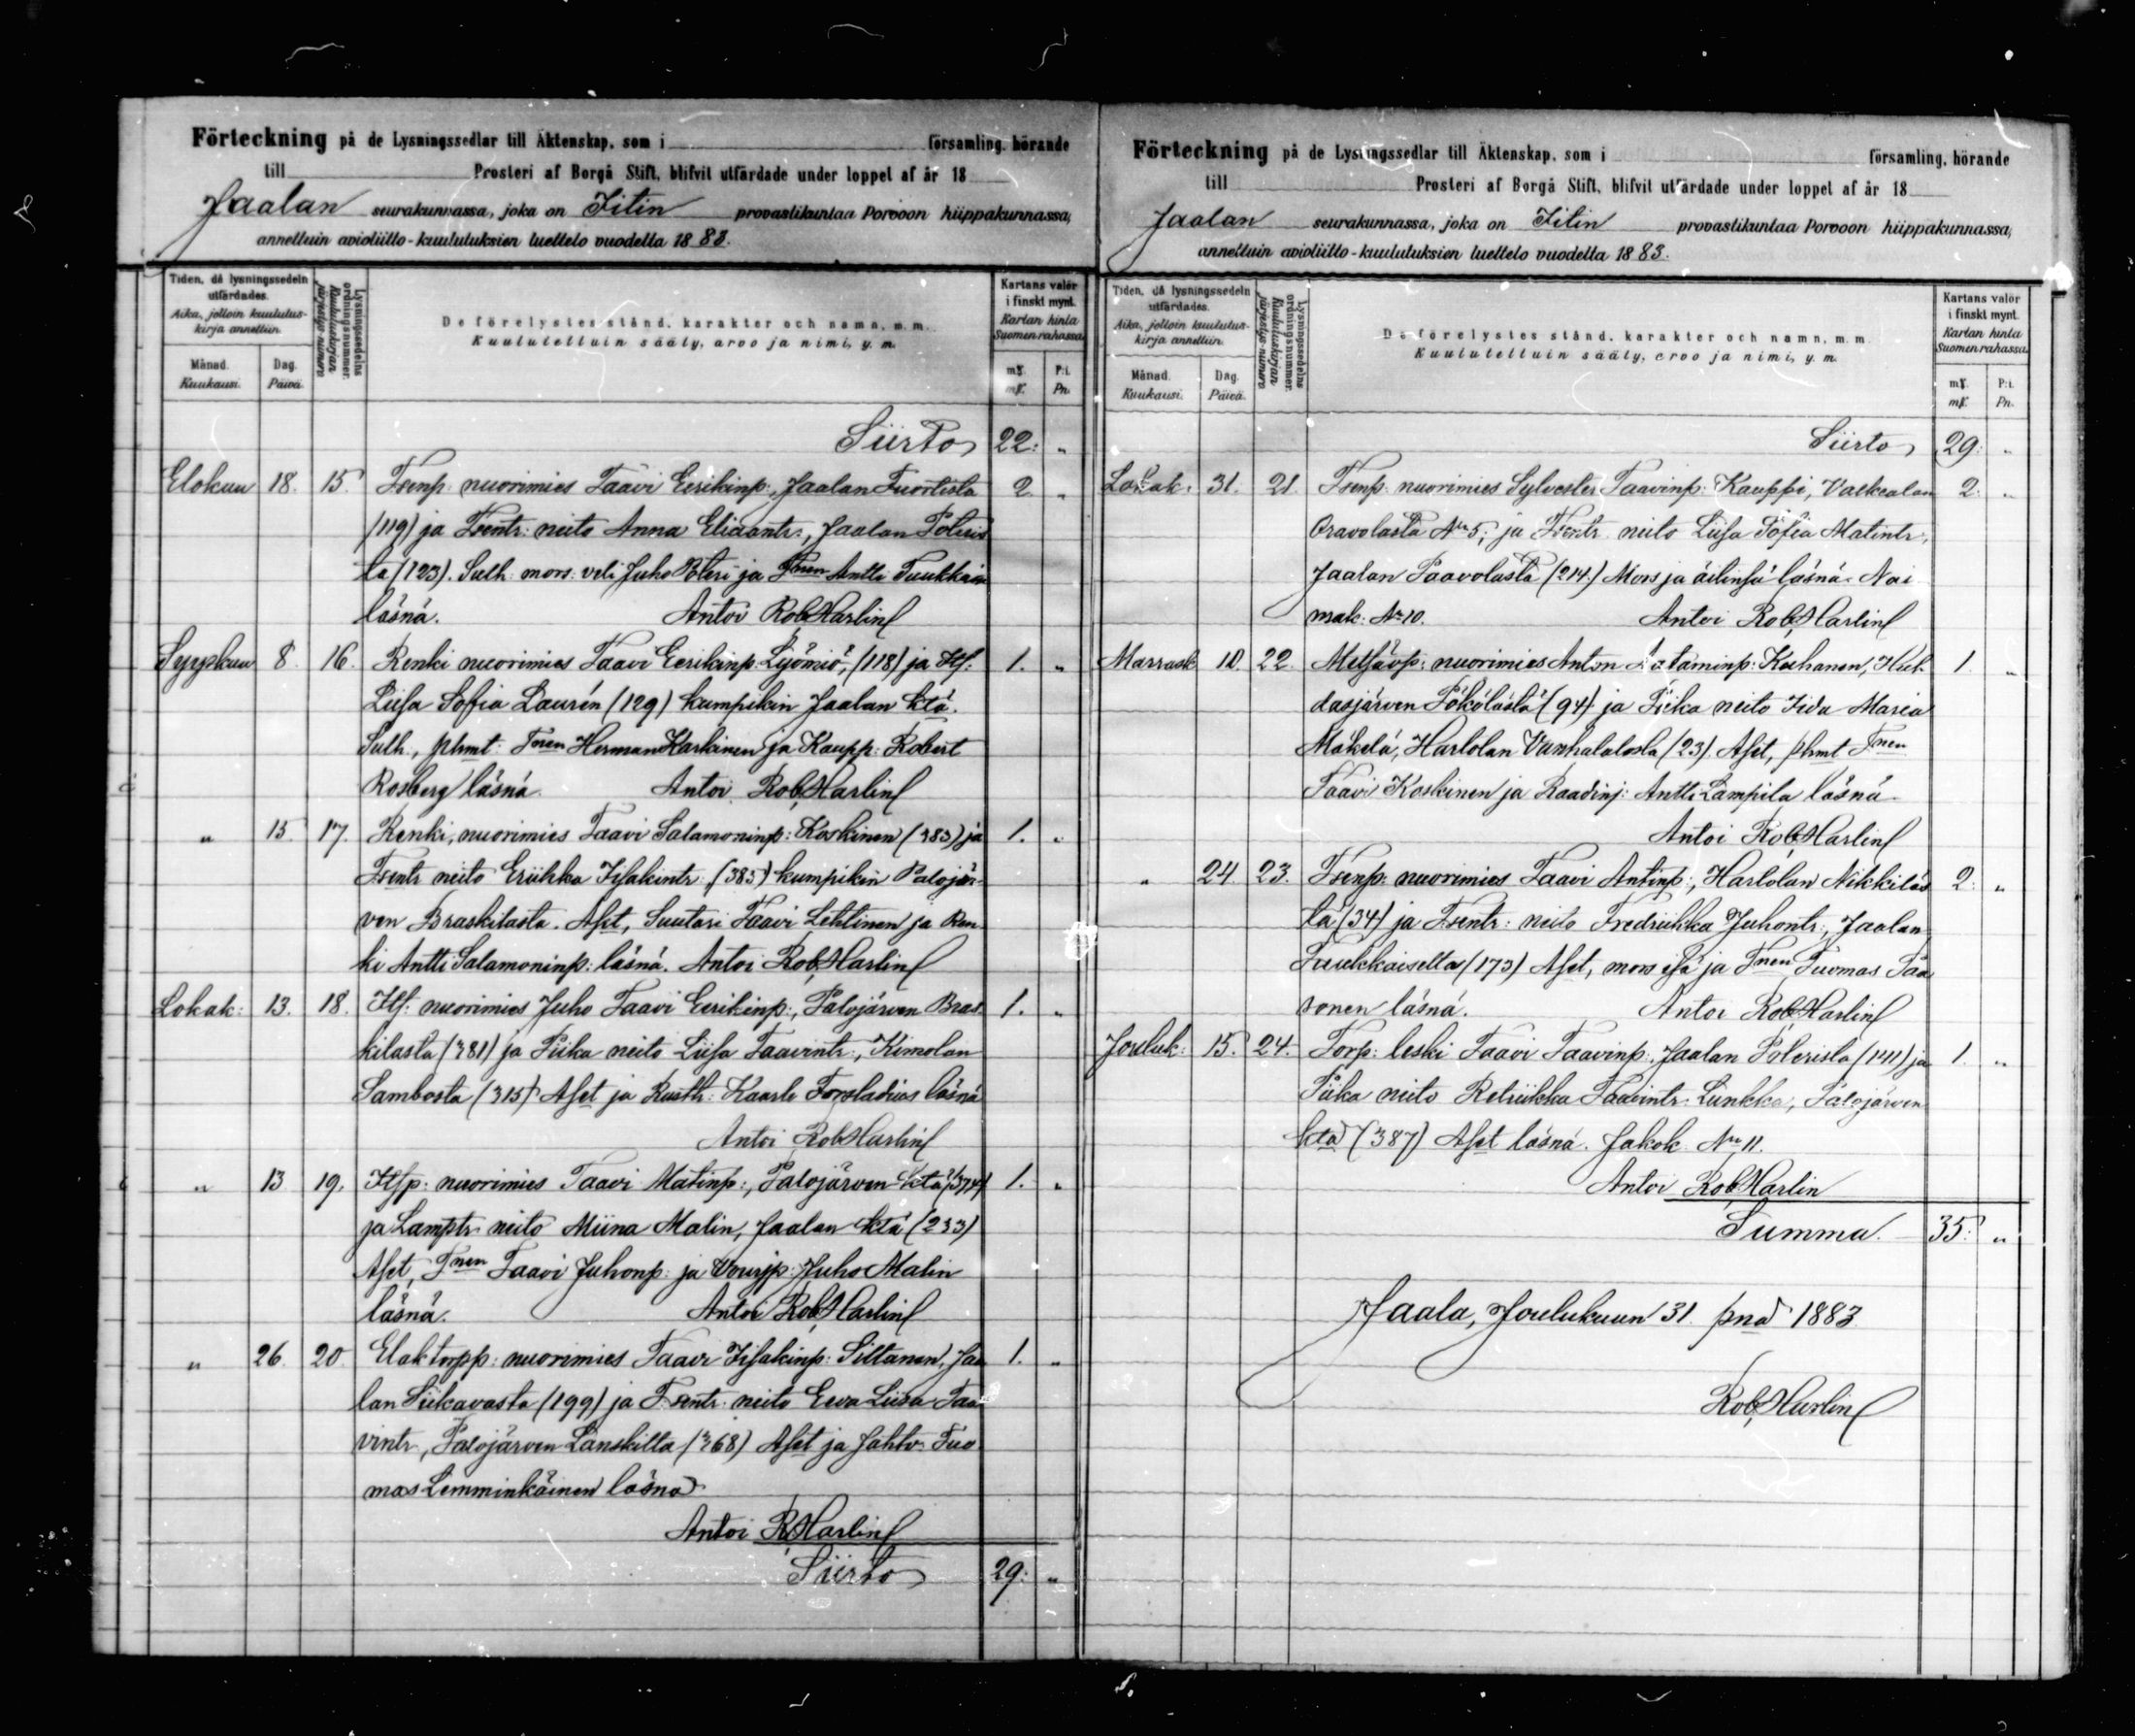 Förteckning på de Lysningssedlar till Äktenskap, som i församling, hörande
till Prosteri af Borgå Stift, blifvit utfärdade under loppet af år 18
Jaalan seurakunnassa, joka on Iitin provastikuntaa Porvoon hiippakunnassa,
annettuin avioliitto-kuulutuksien luettelo vuodelta 1883.
Tiden, då lysningssedeln utfärdades.
Aika, jolloin kuulutuskirja annettiin.
Månad. Kuukausi.
Dag. Päivä.
Lysningssedelns ordningsnummer.
Kuulutuskirjan järjestys-numero
De förelystes stånd, karakter och namn, m. m.
Kuulutettuin sääty, arvo ja nimi, y. m.
Kartans valör i finskt mynt.
Kartan hinta Suomen rahassa.
mf. P:i.
mf. Pn.
Siirto 22: "
Elokuu 18. 15. Tsenp: nuorimies Taavi Eerikinp:, Jaalan Tuortista 2 "
(119) ja Tsentr: neito Anna Eliaantr:, Jaalan Poteris
ta (123). Sulh: mors: veli Juho Poteri ja Tnen Antti Tuukkain
läsnä. Antoi Rob. Harlin
Syyskuu 8. 16. Renki nuorimies Taavi Eerikinp: Lyömiö, (118) ja Itf: 1. "
Liisa Sofia Laurén (129) kumpikin Jaalan ktä.
Sulh., phmt: Tnen Herman Karkinen ja Kaupp: Robert
Rosberg läsnä. Antoi Rob. Harlin
" 15. 17. Renki, nuorimies Taavi Salamoninp: Koskinen (383) ja 1. "
Tsentr neito Eriikka Iisakintr: (385) kumpikin Palojär-
ven Braskilasta. Aset, Suutari Taavi Lehtinen ja Ren
ki Antti Salamoninp: läsnä. Antoi Rob. Harlin
Lokak: 13. 18. Itf: nuorimies Juho Taavi Eerikinp:, Palojärven Bras- 1. "
kilasta (381) ja Piika neito Liisa Taavintr:, Kimolan
Sambosta (315) Aset ja Rusth: Kaarle Forsladius läsnä
Antoi Rob Harlin
" 13 19. Itsp: nuorimies Taavi Matinp:, Palojärven ktä (374) 1. "
ja Lamptr: neito Miina Malin, Jaalan ktä (233)
Aset, Tnen Taavi Juhonp: ja Vourjp: Juho Malin
läsnä. Antoi Rob. Harlin
" 26. 20 Elaktorpp: nuorimies Taavi Iisakinp: Siltanen, Jaa 1. "
lan Siikavasta (199) ja Tsentr: neito Eeva Liisa Taa
vintr:, Palojärven Länskiltä (368) Aset ja Jahtv: Tuo
mas Lemminkäinen läsnä
Antoi R. Harlin
Siirto 29: "
Förteckning på de Lysningssedlar till Äktenskap, som i församling, hörande
till Prosteri af Borgå Stift, blifvit utfärdade under loppet af år 18
Jaalan seurakunnassa, joka on Iitin provastikuntaa Porvoon hiippakunnassa,
annettuin avioliitto-kuulutuksien luettelo vuodelta 1883.
Tiden, då lysningssedeln utfärdades.
Aika, jolloin kuulutuskirja annettiin.
Månad. Kuukausi.
Dag. Päivä.
Lysningssedelns ordningsnummer.
Kuulutuskirjan järjestys-numero
De förelystes stånd, karakter och namn, m. m.
Kuulutettuin sääty, arvo ja nimi, y. m.
Kartans valör i finskt mynt.
Kartan hinta Suomen rahassa.
mf. P:i.
mf. Pn.
Siirto 29: "
Lokak. 31. 21. Tsenp: nuorimies Sylvester Taavinp: Kauppi, Valkealan 2: "
Oravolasta No 5; ja Tsentr neito Liisa Sofia Matintr,
Jaalan Paavolasta (214.) Mors ja äitinsä läsnä. Nai
mak: No 10. Antoi Rob. Harlin
Marrask 10. 22. Metsävp: nuorimies Anton Aataminp: Kuhanen, Huh- 1. "
dasjärven Pökölästä (94) ja Piika neito Iida Maria
Mäkelä, Hartolan Vanhalalosta (23). Aset, phmt Tnen
Taavi Koskinen ja Raadinj: Antti Lampila läsnä.
Antoi Rob. Harlin
" 24. 23. Tsenp: nuorimies Taavi Antinp:, Hartolan Nikkiläs 2: "
tä (34) ja Tsentr: neito Fredriikka Juhontr:, Jaalan
Tuukkaiselta (173) Aset, mors isä ja Tnen Tuomas Paa
sonen läsnä. Antoi Rob. Harlin
Jouluk: 15. 24. Torp: leski Taavi Taavinp:, Jaalan Poterista (141) ja 1. "
Piika neito Retriikka Taavintr: Liinkka, Palojärven
ktä (387) Aset läsnä. Jakok No 11.
Antoi Rob. Harlin
Summa. 35: "
Jaala, Joulukuun 31. pnä 1883
Rob. Harlin